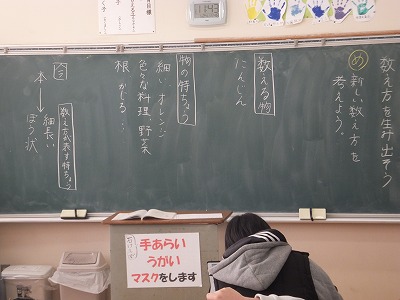 数え方を生み出そう
め
新しい数え方を
考えよう。
数える物
にんじん
物の特ちょう
細い・オレンジ
色々な料理・野菜
根 かじる…
数え方が表す特ちょう
今
本
細長い
ぼう状
手あらい
うがい
マスクをします